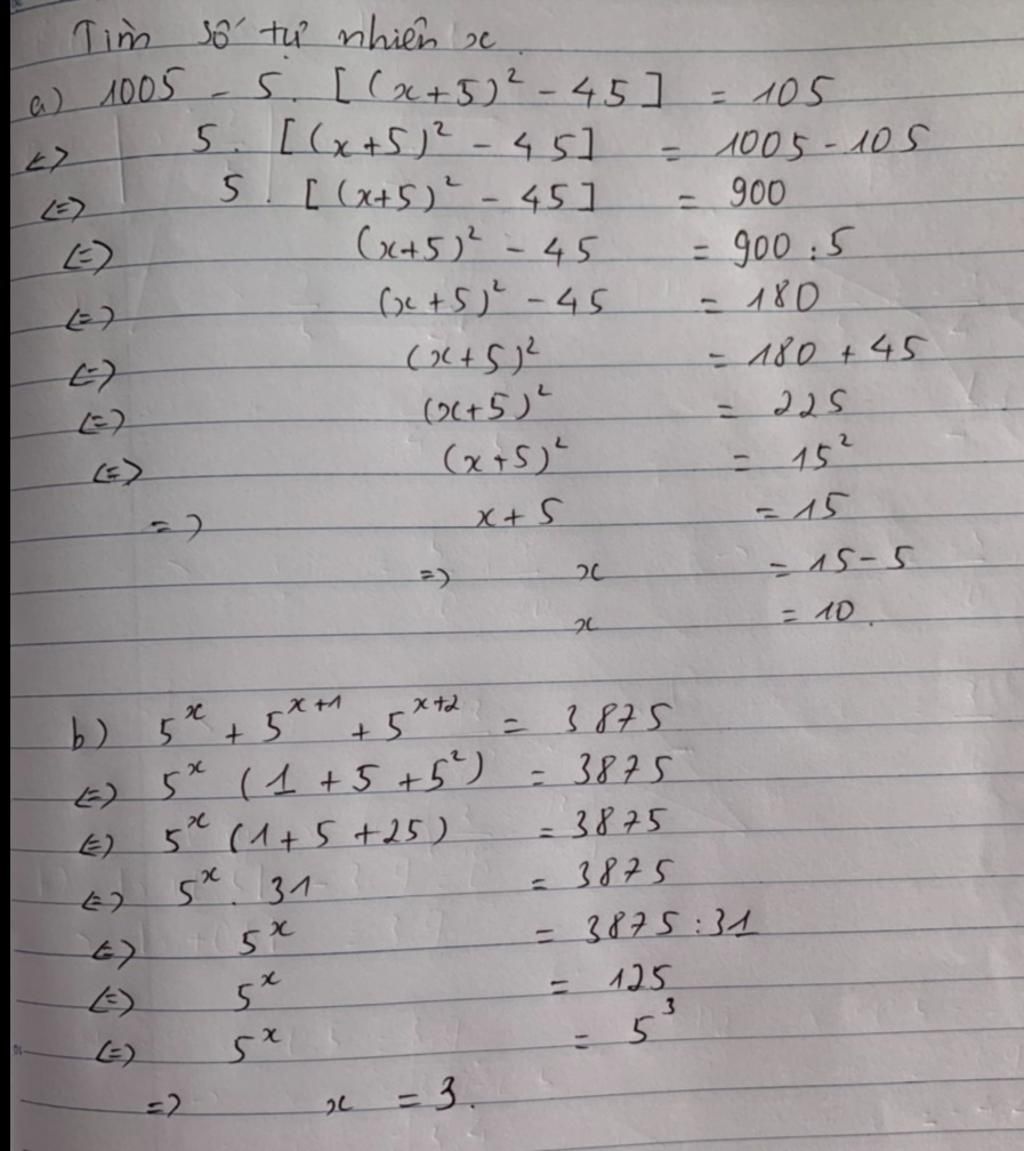 Tìm số tự nhiên x.
a) 1005 - 5. [(x+5)² - 45] = 105
<=> 5. [(x+5)² - 45] = 1005 - 105
<=> 5. [(x+5)² - 45] = 900
<=> (x+5)² - 45 = 900 : 5
<=> (x+5)² - 45 = 180
<=> (x+5)² = 180 + 45
<=> (x+5)² = 225
<=> (x+5)² = 15²
=> x + 5 = 15
=> x = 15 - 5
x = 10.
b) 5ˣ + 5ˣ⁺¹ + 5ˣ⁺² = 3875
<=> 5ˣ (1 + 5 + 5²) = 3875
<=> 5ˣ (1 + 5 + 25) = 3875
<=> 5ˣ . 31 = 3875
<=> 5ˣ = 3875 : 31
<=> 5ˣ = 125
<=> 5ˣ = 5³
=> x = 3.